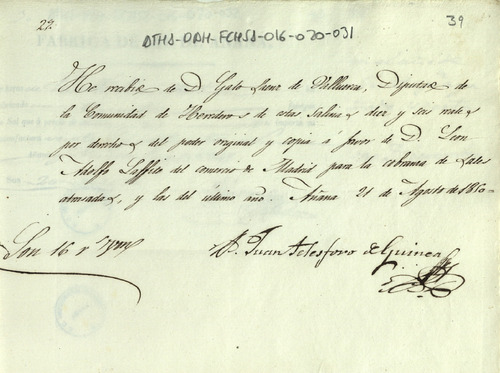 29. 39
DTHA-DAH-FCHSA-016-020-031
He recibido de D. Galo Saenz de Villuerca, Diputado de
la Comunidad de Herederos de estas Salinas diez y seis reales
por derechos del poder original y copia á favor de D. Leon
Adolfo Laffite del comercio de Madrid para la cobranza de sales
atrasadas, y las del último año. Añana 21 de Agosto de 1850
Son 16 rs
D. Juan Telesforo de Guinea